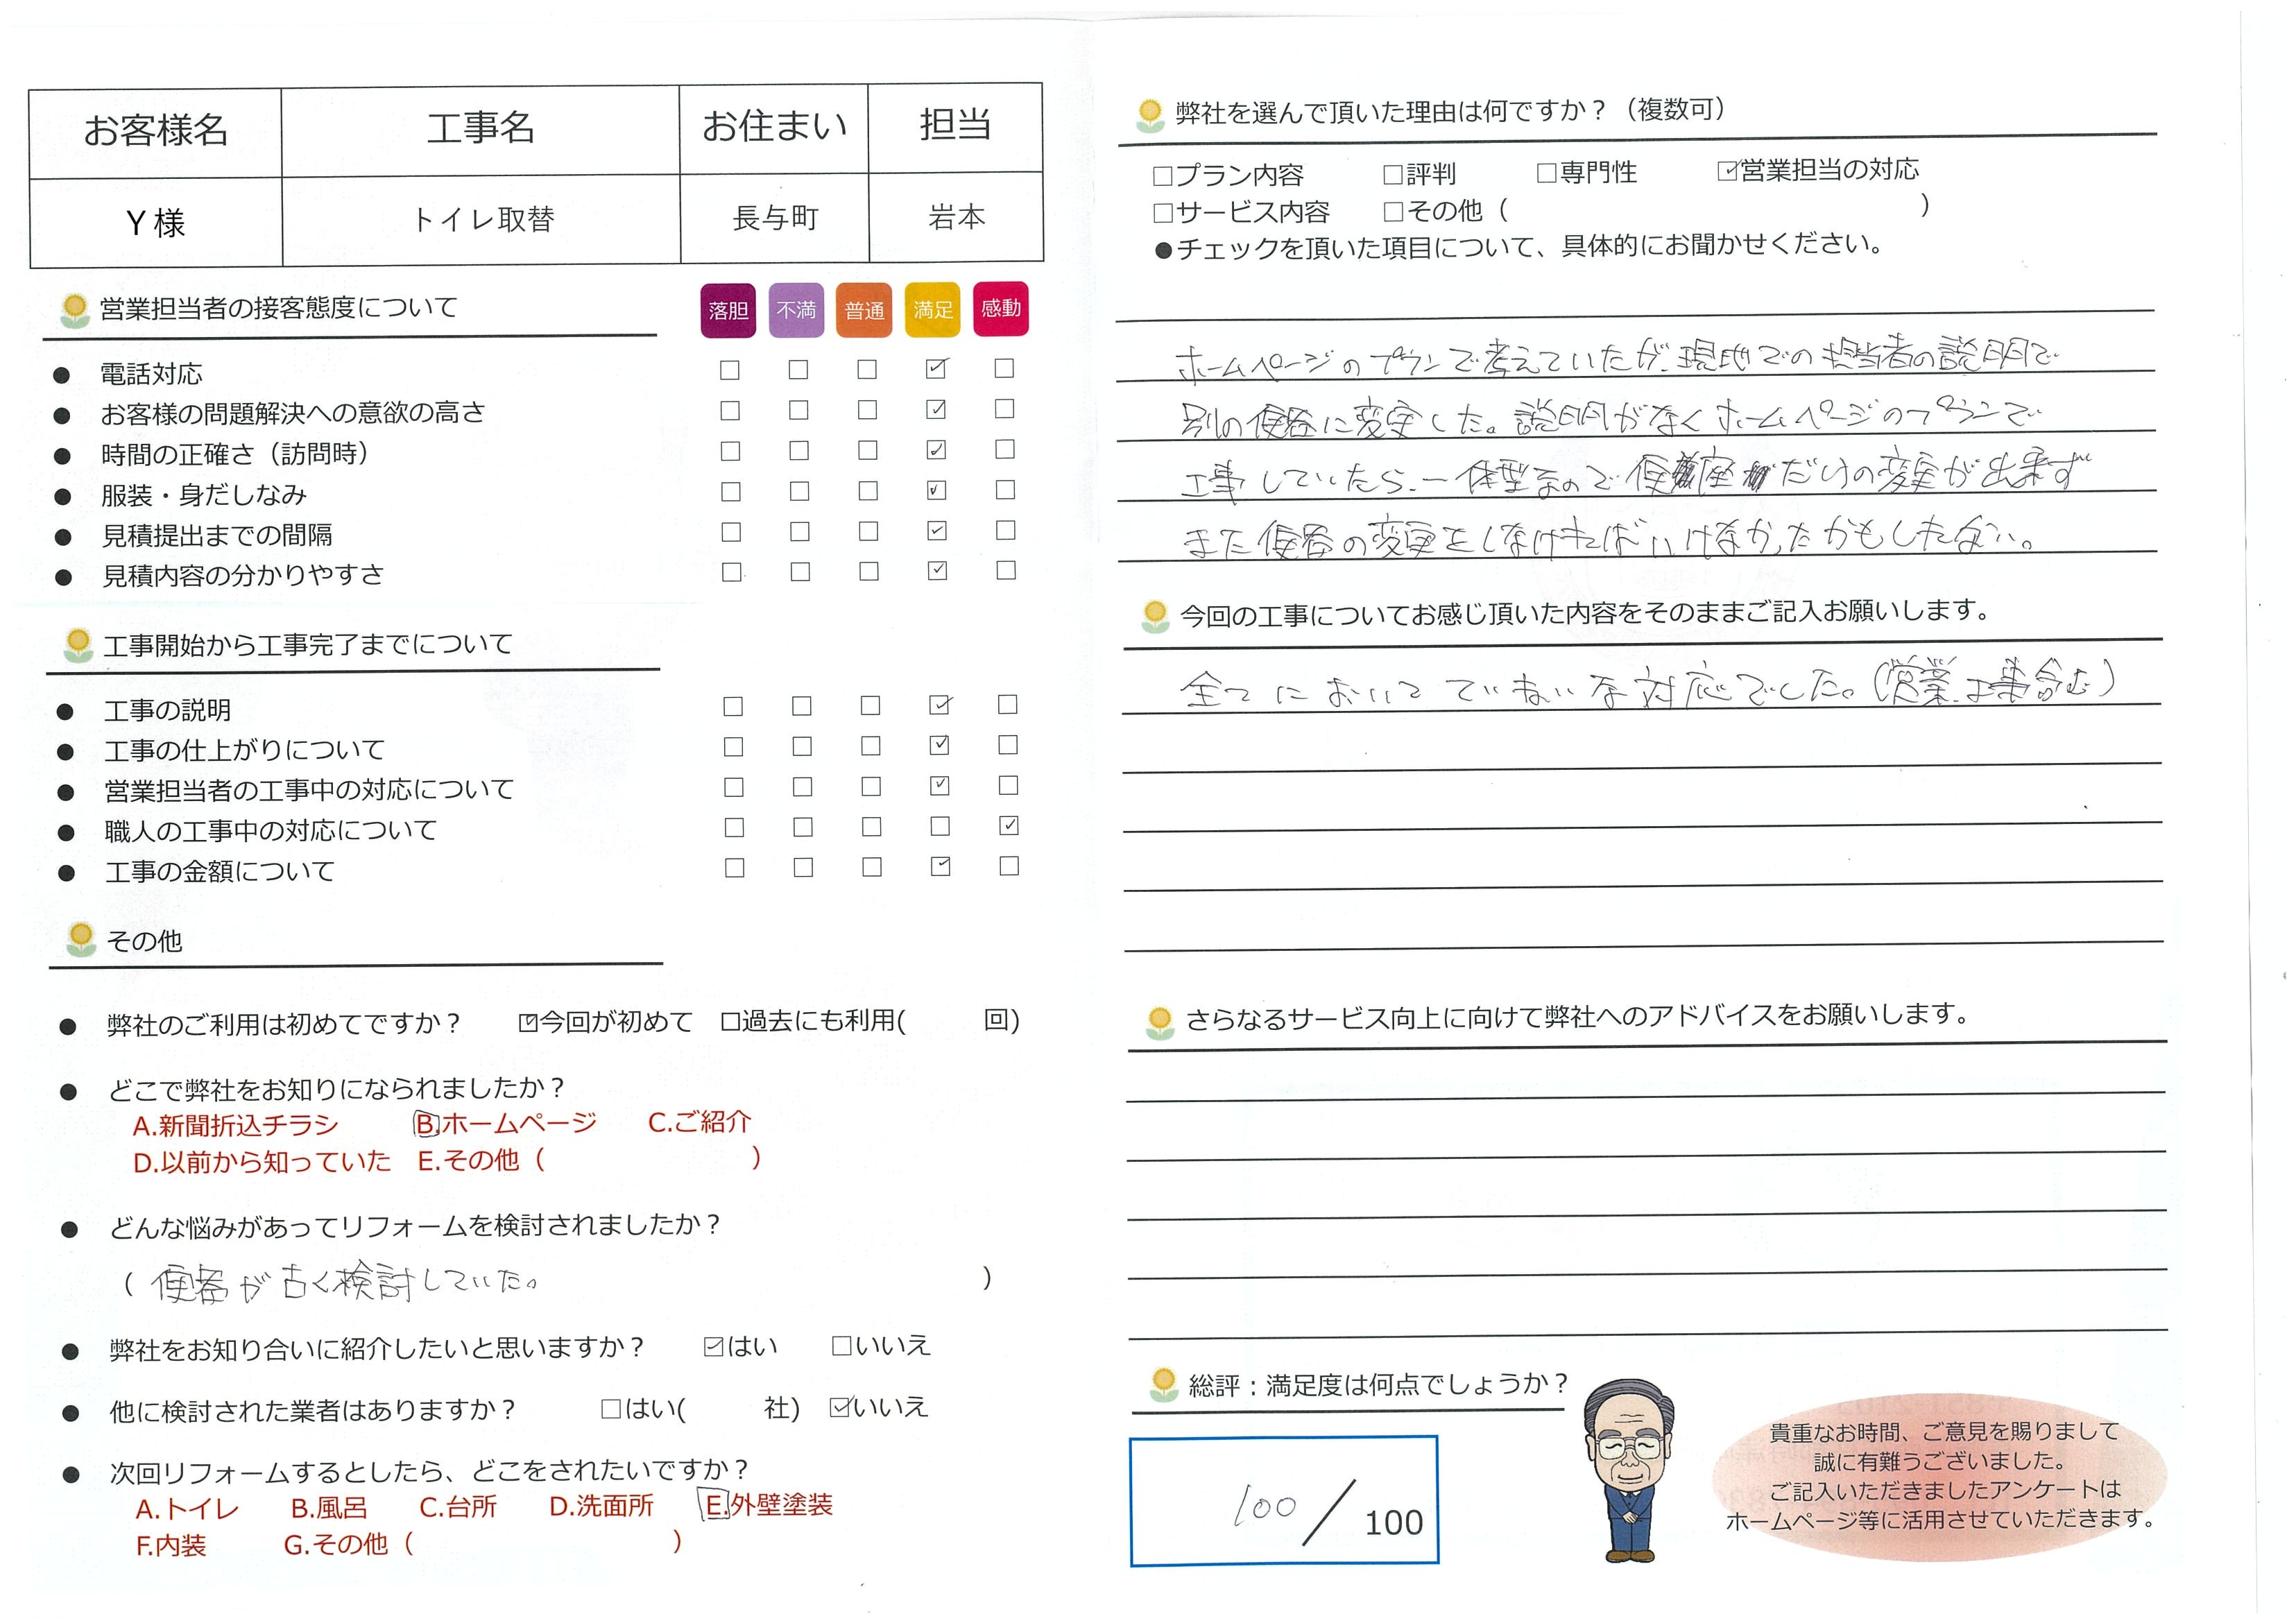 お客様名 工事名 お住まい 担当
Y様 トイレ取替 長与町 岩本
営業担当者の接客態度について 落胆 不満 普通 満足 感動
● 電話対応 □ □ □ ☑ □
● お客様の問題解決への意欲の高さ □ □ □ ☑ □
● 時間の正確さ（訪問時） □ □ □ ☑ □
● 服装・身だしなみ □ □ □ ☑ □
● 見積提出までの間隔 □ □ □ ☑ □
● 見積内容の分かりやすさ □ □ □ ☑ □
工事開始から工事完了までについて
● 工事の説明 □ □ □ ☑ □
● 工事の仕上がりについて □ □ □ ☑ □
● 営業担当者の工事中の対応について □ □ □ ☑ □
● 職人の工事中の対応について □ □ □ □ ☑
● 工事の金額について □ □ □ ☑ □
その他
● 弊社のご利用は初めてですか？ ☑今回が初めて □過去にも利用( 回)
● どこで弊社をお知りになられましたか？
A.新聞折込チラシ B.ホームページ C.ご紹介
D.以前から知っていた E.その他（ ）
● どんな悩みがあってリフォームを検討されましたか？
（ 便器が古く検討していた。 ）
● 弊社をお知り合いに紹介したいと思いますか？ ☑はい □いいえ
● 他に検討された業者はありますか？ □はい( 社) ☑いいえ
● 次回リフォームするとしたら、どこをされたいですか？
A.トイレ B.風呂 C.台所 D.洗面所 E.外壁塗装
F.内装 G.その他（ ）
弊社を選んで頂いた理由は何ですか？（複数可）
□プラン内容 □評判 □専門性 ☑営業担当の対応
□サービス内容 □その他（ ）
●チェックを頂いた項目について、具体的にお聞かせください。
ホームページのプランで考えていたが、現地での担当者の説明で
別の便器に変更した。説明がなくホームページのプランで
工事していたら、一体型なので便座だけの変更が出来ず
また便器の変更をしなければいけなかったかもしれない。
今回の工事についてお感じ頂いた内容をそのままご記入お願いします。
全てにおいてていねいな対応でした。（営業、工事含む）
さらなるサービス向上に向けて弊社へのアドバイスをお願いします。
総評：満足度は何点でしょうか？
100 / 100
貴重なお時間、ご意見を賜りまして
誠に有難うございました。
ご記入いただきましたアンケートは
ホームページ等に活用させていただきます。